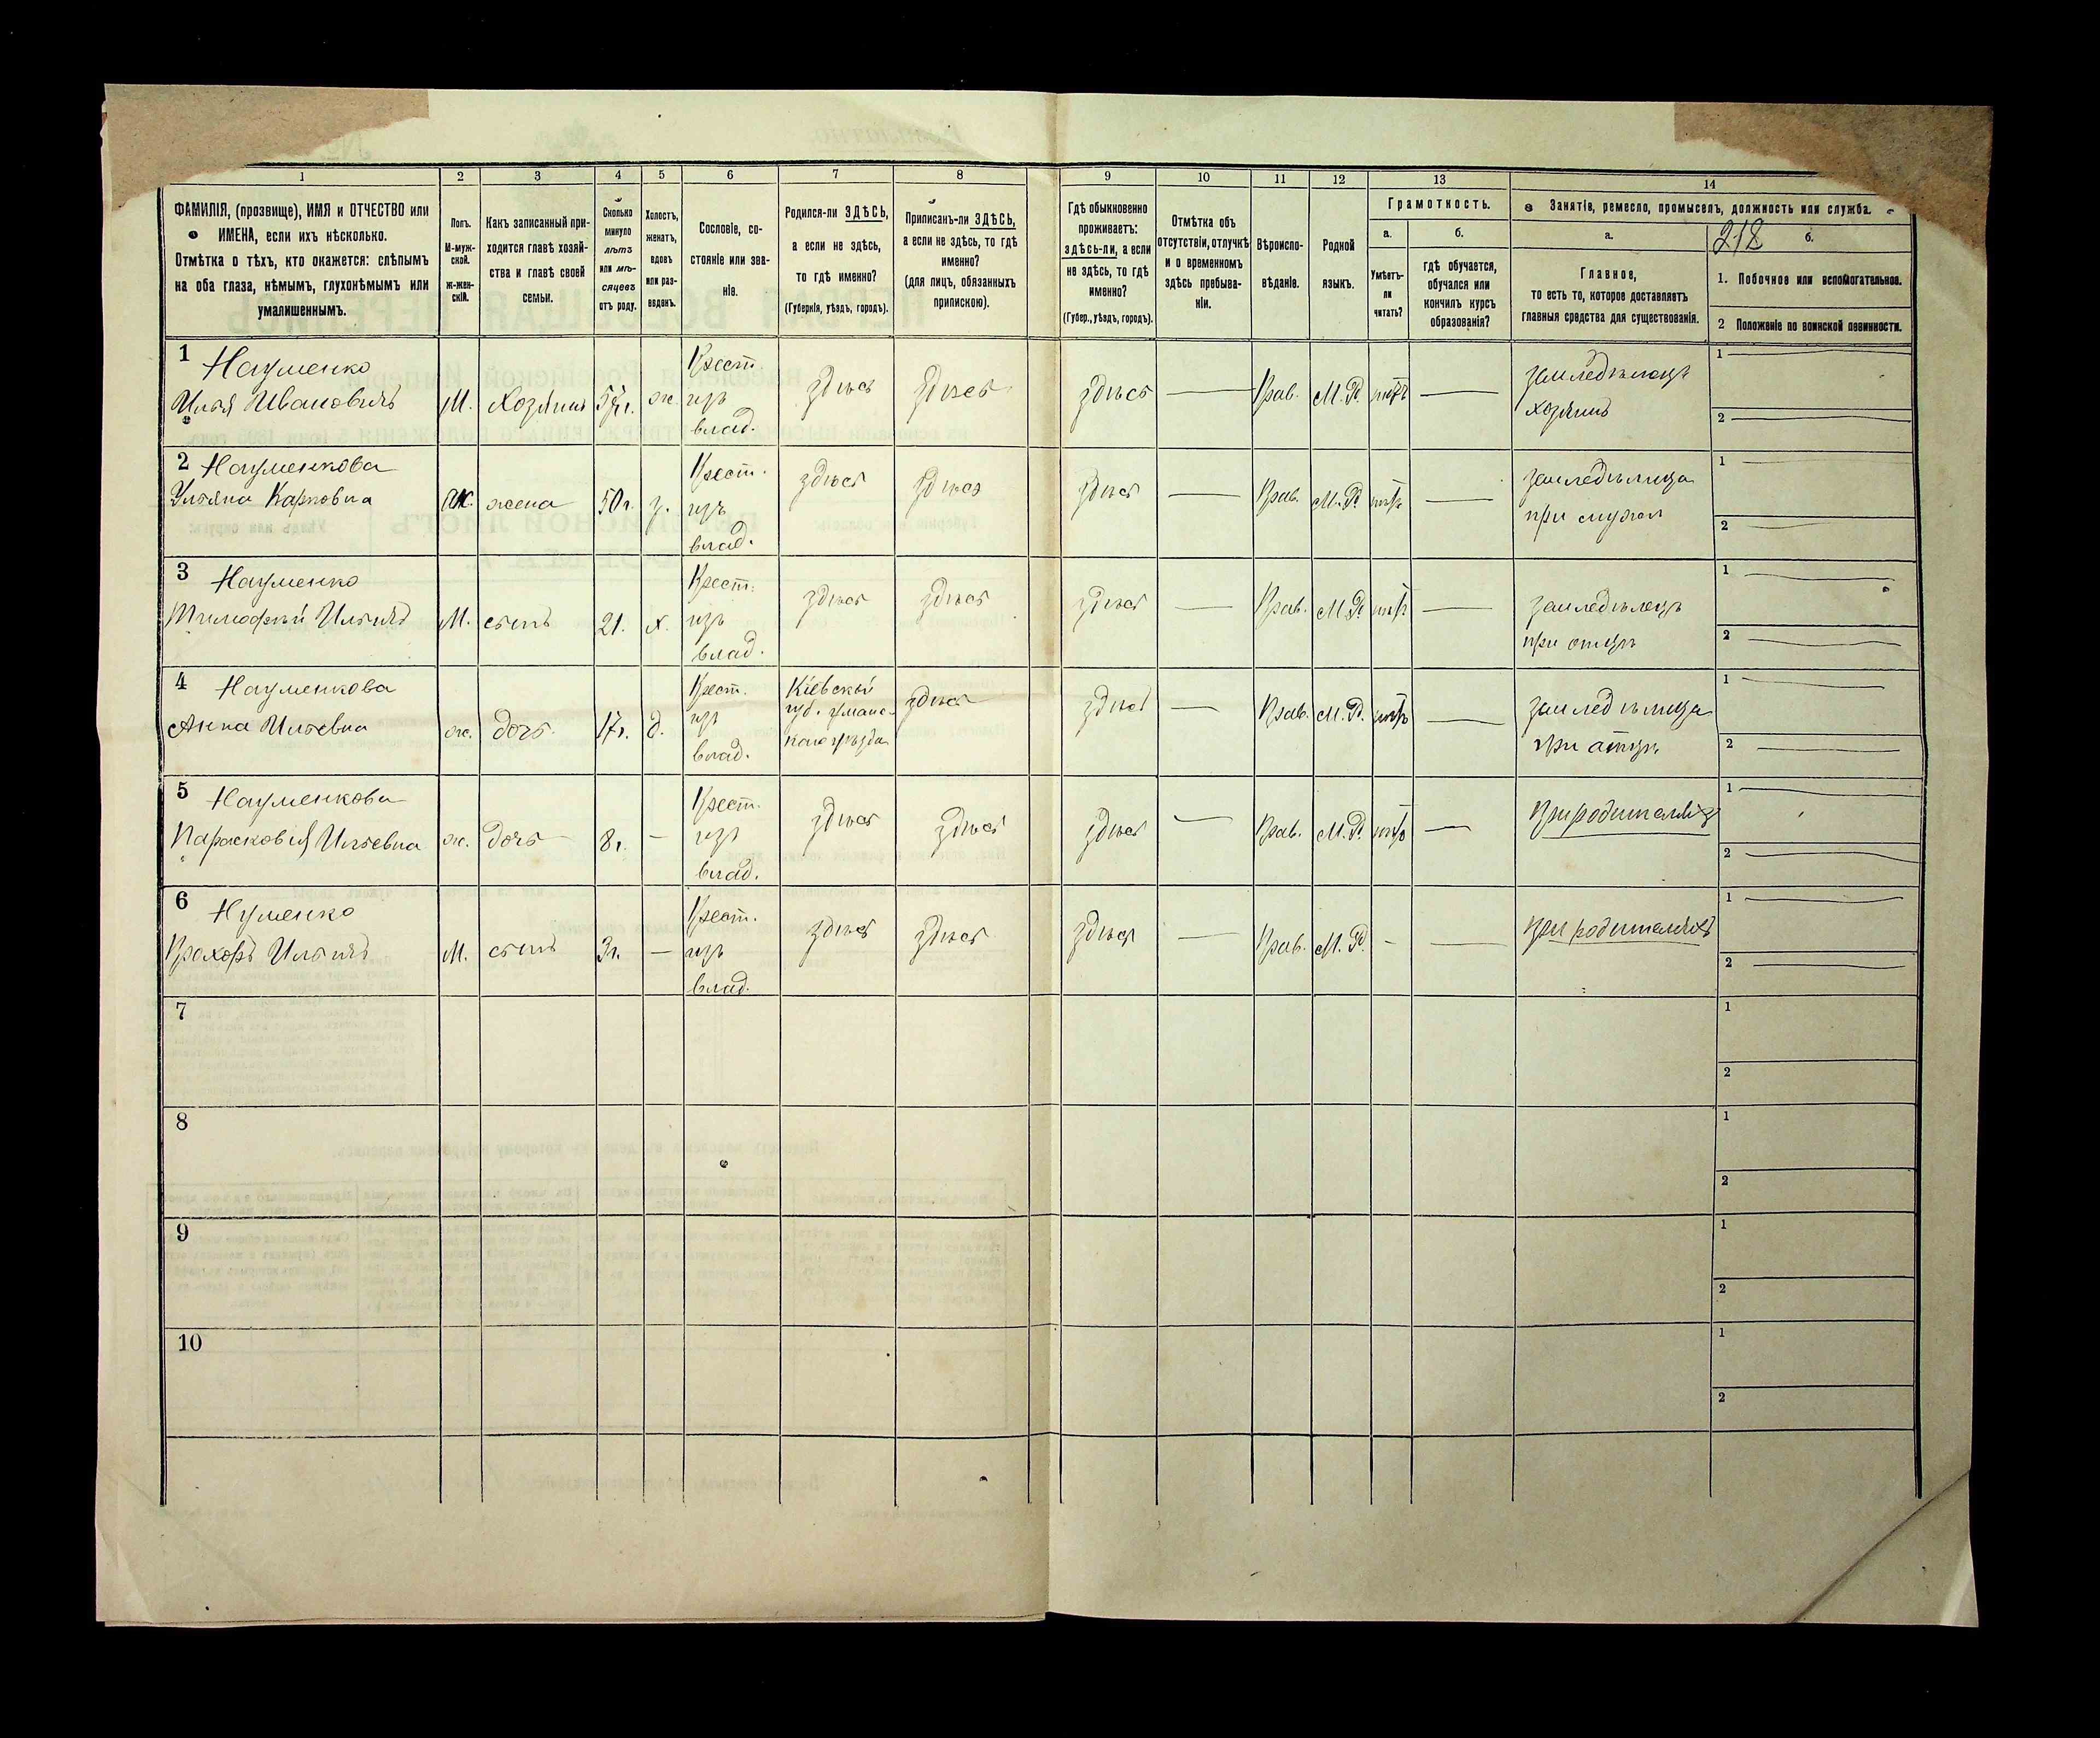 1 2 3 4 5 6 7 8 9 10 11 12 13 14
ФАМИЛІЯ, (прозвище), ИМЯ и ОТЧЕСТВО или
ИМЕНА, если ихъ нѣсколько.
Отмѣтка о тѣхъ, кто окажется: слѣпымъ
на оба глаза, нѣмымъ, глухонѣмымъ или
умалишеннымъ.
Полъ.
М-муж-
ской.
ж-жен-
скій.
Какъ записанный при-
ходится главѣ хозяй-
ства и главѣ своей
семьи.
Сколько
минуло
лѣтъ
или мѣ-
сяцевъ
отъ роду.
Холостъ,
женатъ,
вдовъ
или раз-
веденъ.
Сословіе, со-
стояніе или зва-
ніе.
Родился-ли ЗДѢСЬ,
а если не здѣсь,
то гдѣ именно?
(Губернія, уѣздъ, городъ).
Приписанъ-ли ЗДѢСЬ,
а если не здѣсь, то гдѣ
именно?
(для лицъ, обязанныхъ
припискою).
Гдѣ обыкновенно
проживаетъ:
здѣсь-ли, а если
не здѣсь, то гдѣ
именно?
(Губер., уѣздъ, городъ).
Отмѣтка объ
отсутствіи, отлучкѣ
и о временномъ
здѣсь пребыва-
ніи.
Вѣроиспо-
вѣданіе.
Родной
языкъ.
Грамотность.
а.
Умѣетъ-
ли
читать?
б.
гдѣ обучается,
обучался или
кончилъ курсъ
образованія?
Занятіе, ремесло, промыселъ, должность или служба.
а.
Главное,
то есть то, которое доставляетъ
главныя средства для существованія.
218
б.
1. Побочное или вспомогательное.
2 Положеніе по воинской повинности.
1 Науменко
Илья Ивановичъ
М.
Хозяинъ
ж.
Крест.
изъ
влад.
здѣсь
здѣсь
здѣсь
Прав.
М. Р.
нѣтъ
земледѣлецъ
хозяинъ
1
2
2 Науменкова
Ульяна Карповна
ж.
жена
50 г.
з.
Крест.
изъ
влад.
здѣсь
здѣсь
здѣсь
Прав.
М. Р.
нѣтъ
земледѣлица
при мужѣ
1
2
3 Науменко
Тимофѣй Ильичъ
М.
сынъ
21.
х.
Крест.
изъ
влад.
здѣсь
здѣсь
здѣсь
Прав.
М. Р.
нѣтъ
земледѣлецъ
при отцѣ
1
2
4 Науменкова
Анна Ильевна
ж.
дочь
17 г.
д.
Крест.
изъ
влад.
Кіевской
губ. Уманс-
каго уѣзда
здѣсь
здѣсь
Прав.
М. Р.
нѣтъ
земледѣлица
при отцѣ
1
2
5 Науменкова
Парасковія Ильевна
ж.
дочь
8 г.
Крест.
изъ
влад.
здѣсь
здѣсь
здѣсь
Прав.
М. Р.
нѣтъ
при родителяхъ
1
2
6 Нуменко
Прохоръ Ильичъ
М.
сынъ
3 г.
Крест.
изъ
влад.
здѣсь
здѣсь
здѣсь
Прав.
М. Р.
-
при родителяхъ
1
2
7
1
2
8
1
2
9
1
2
10
1
2